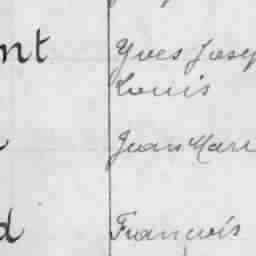 nt Yves Josep
Louis
Jean Mari
d François